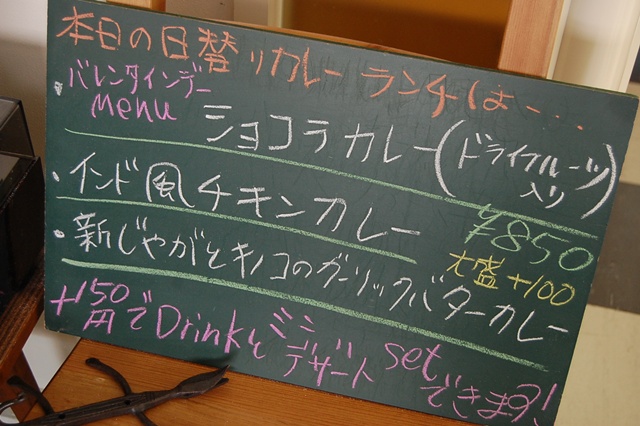 本日の日替りカレーランチは…
・バレンタインデー
menu
ショコラカレー(ドライフルーツ入り)
・インド風チキンカレー
¥850
・新じゃがとキノコのガーリックバターカレー
大盛+100
+150円でDrinkとミニデザートsetできます!